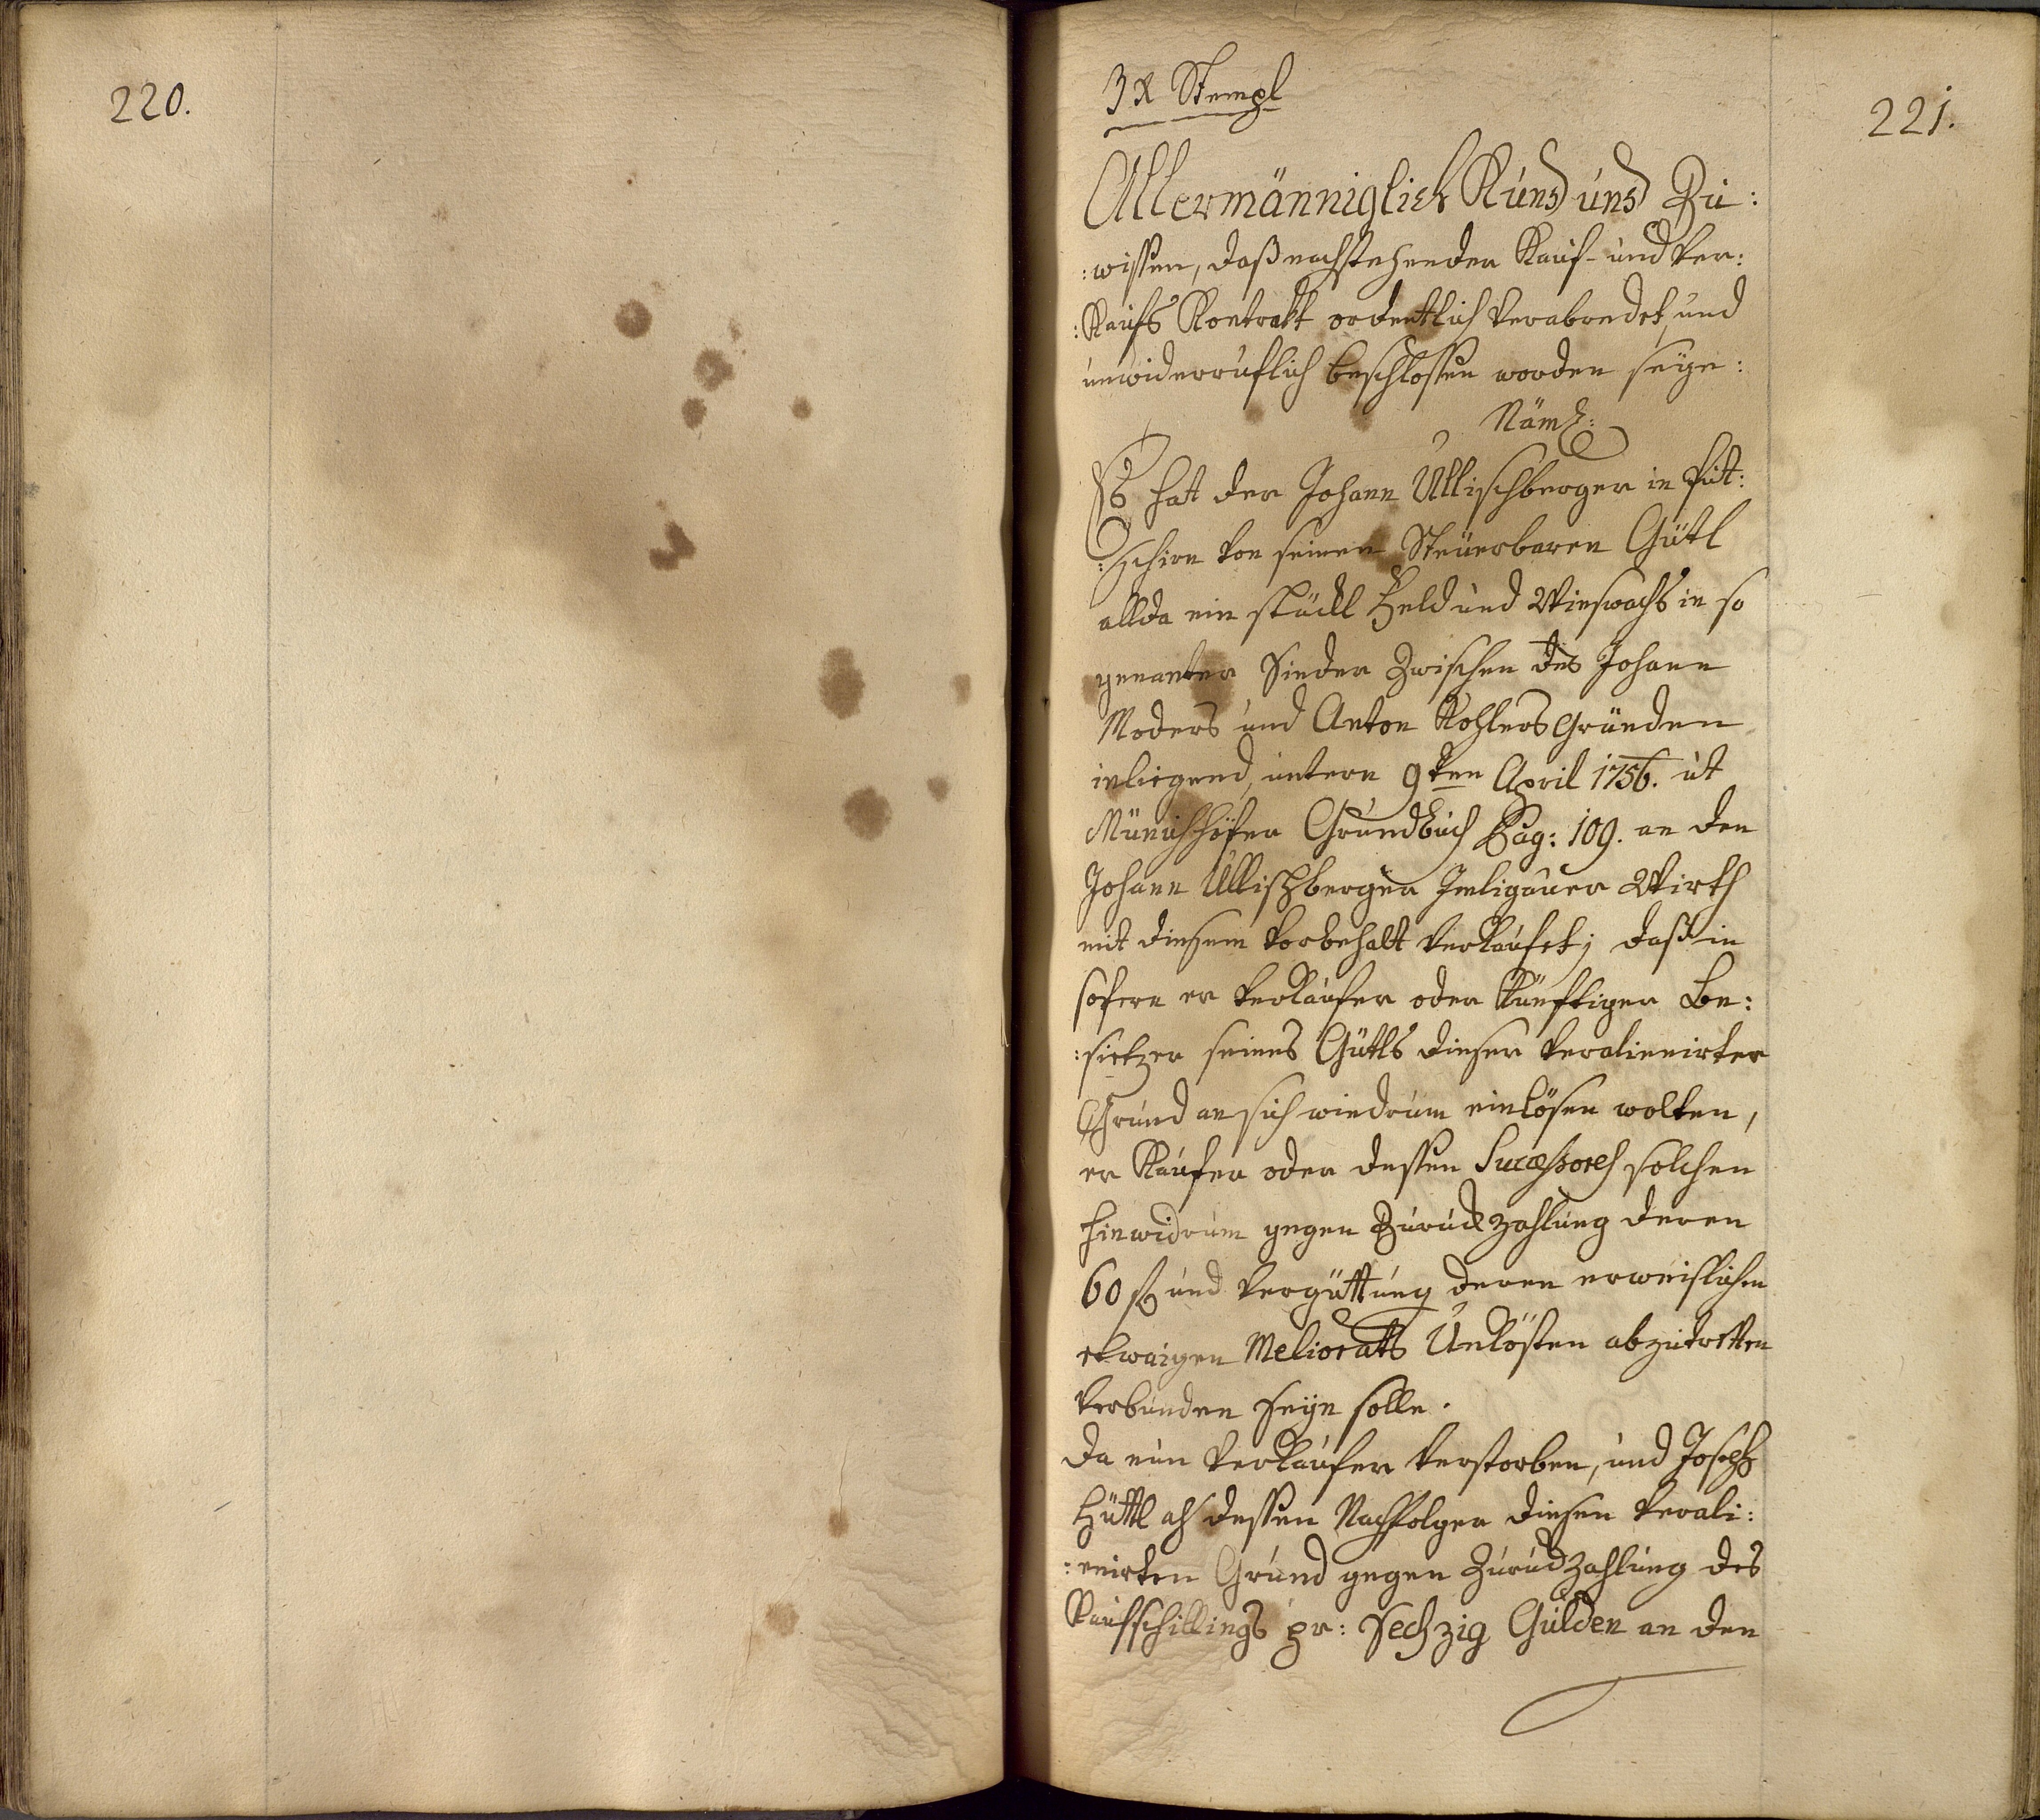 220.
221.
3 x Stempl
Allermänniglich Kund und Zu:
:wissen, daß nachstehender Kauf- und Ver:
:kaufs Kontrakt ordentlich verabredet, und
unwiderruflich beschlossen worden seye:
Näml:
Es hat der Johann Ullischberger in Püt:
:schirn von seinen Steüerbaren Gütl
allda ein stückl Feld und Wieswachs in so
genanter Sieder zwischen des Johann
Moders und Anton Kohlers Gründen
inligend, untern 9ten April 1756. ut
Münichhöfer Grundbuch Pag: 109. an den
Johann Ullischberger Wirth
mit diesem vorbehalt verkaufet; daß in
sofern er verkäufer oder künftiger Be:
:sietzer seines Gütls dieser veralienirter
Grund an sich wiedrum einlösen wolten,
er Käufer oder dessen Sucessores solchen
hinwidrum gegen Zuruckzahlung deren
60 f und Vergüttung deren erweislichen
etwaigen Meliorats Unkösten abzutretten
verbunden seyn solle.
Da nun Verkäufer verstorben, und Joseph
Hüttl als dessen Nachfolger diesen verali:
:enirten Grund gegen Zuruckzahlung des
Kaufschillings pr: Sechzig Gulden an den